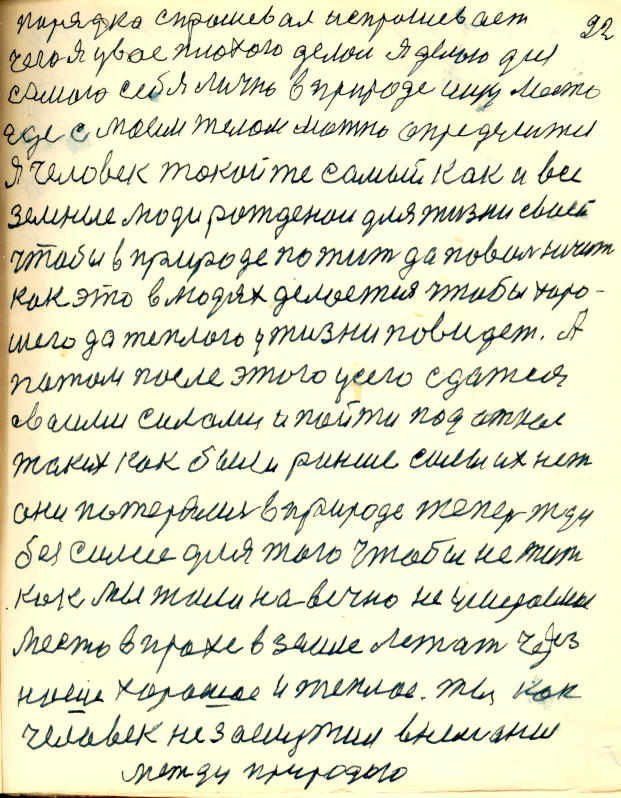 порядка спрашевал и спрашевает 22
чего я у вас плохого делаю я делаю для
самого себя лично в природе ищу место
где с моем телом можно определитця
я человек такой же самый как и все
земные люди рожденои для жизни своей
чтобы в природе пожит да поволничат
как это в людях делается чтобы хоро-
шего да теплого у жизни повидет. А
патом после этого усего сдатся
сваими силами и пойти под откос
таких как были ринше силы их нет
они потеряли в природе тепер жду
без силие для того чтобы не жит
как мы жили на вечно не умераемые
место в прахе в земле лежат через
наше хорошое и теплое. ты как
человек не заслужил внемание
между природою